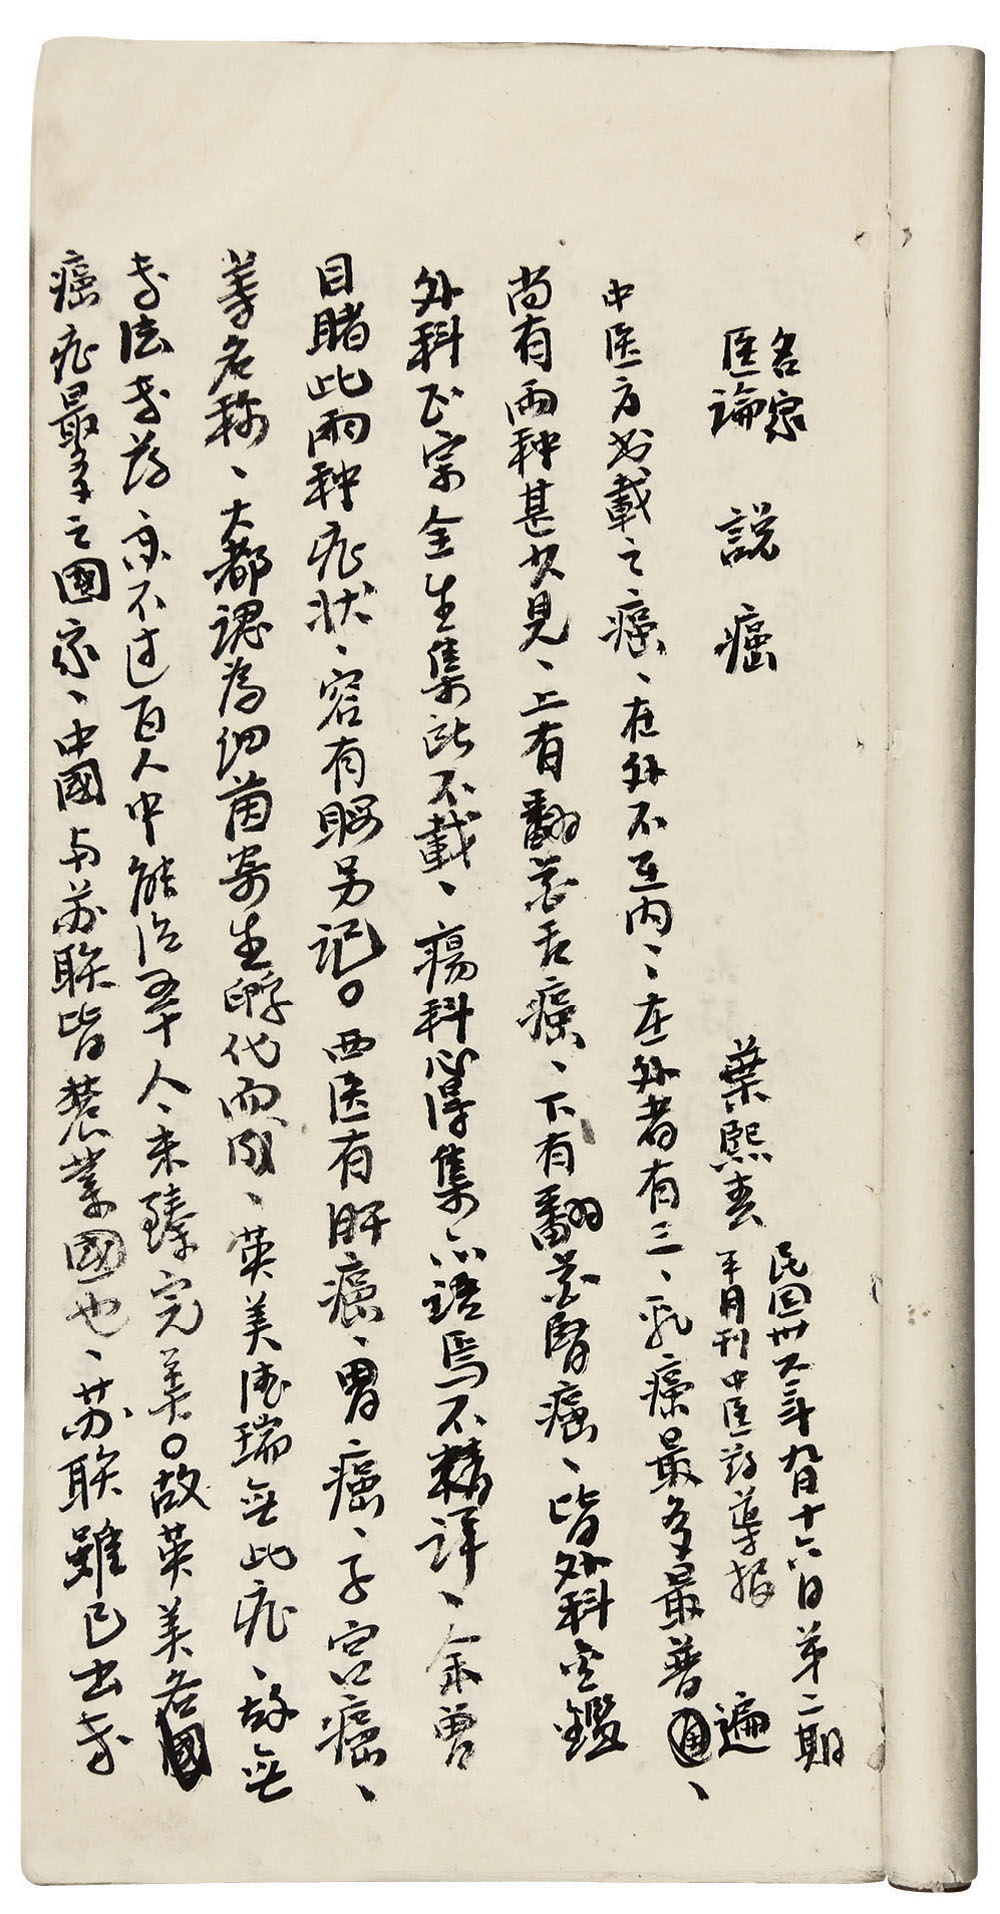 名家
医論 説癌 葉熙春
民国卅六年九月十六日第二期
半月刊中医药導报
中医方书載之癌、在外不在内、在外者有三、乳癌最多最普遍、
尚有两种甚少見、上有翻花舌癌、下有翻花肾癌、皆外科金鑑
外科正宗全生集所不載、瘍科心得集亦語焉不精詳、余曾
目睹此两种症状、容有暇另记。西医有肝癌、胃癌、子宫癌、
等名称、大都認為细菌寄生孵代而成、英美德瑞無此症、故無
专法专药亦不过百人中能治五十人、未臻完美。故英美各國
癌症最多之國家、中國与苏联皆農業國也、苏联雖已出专